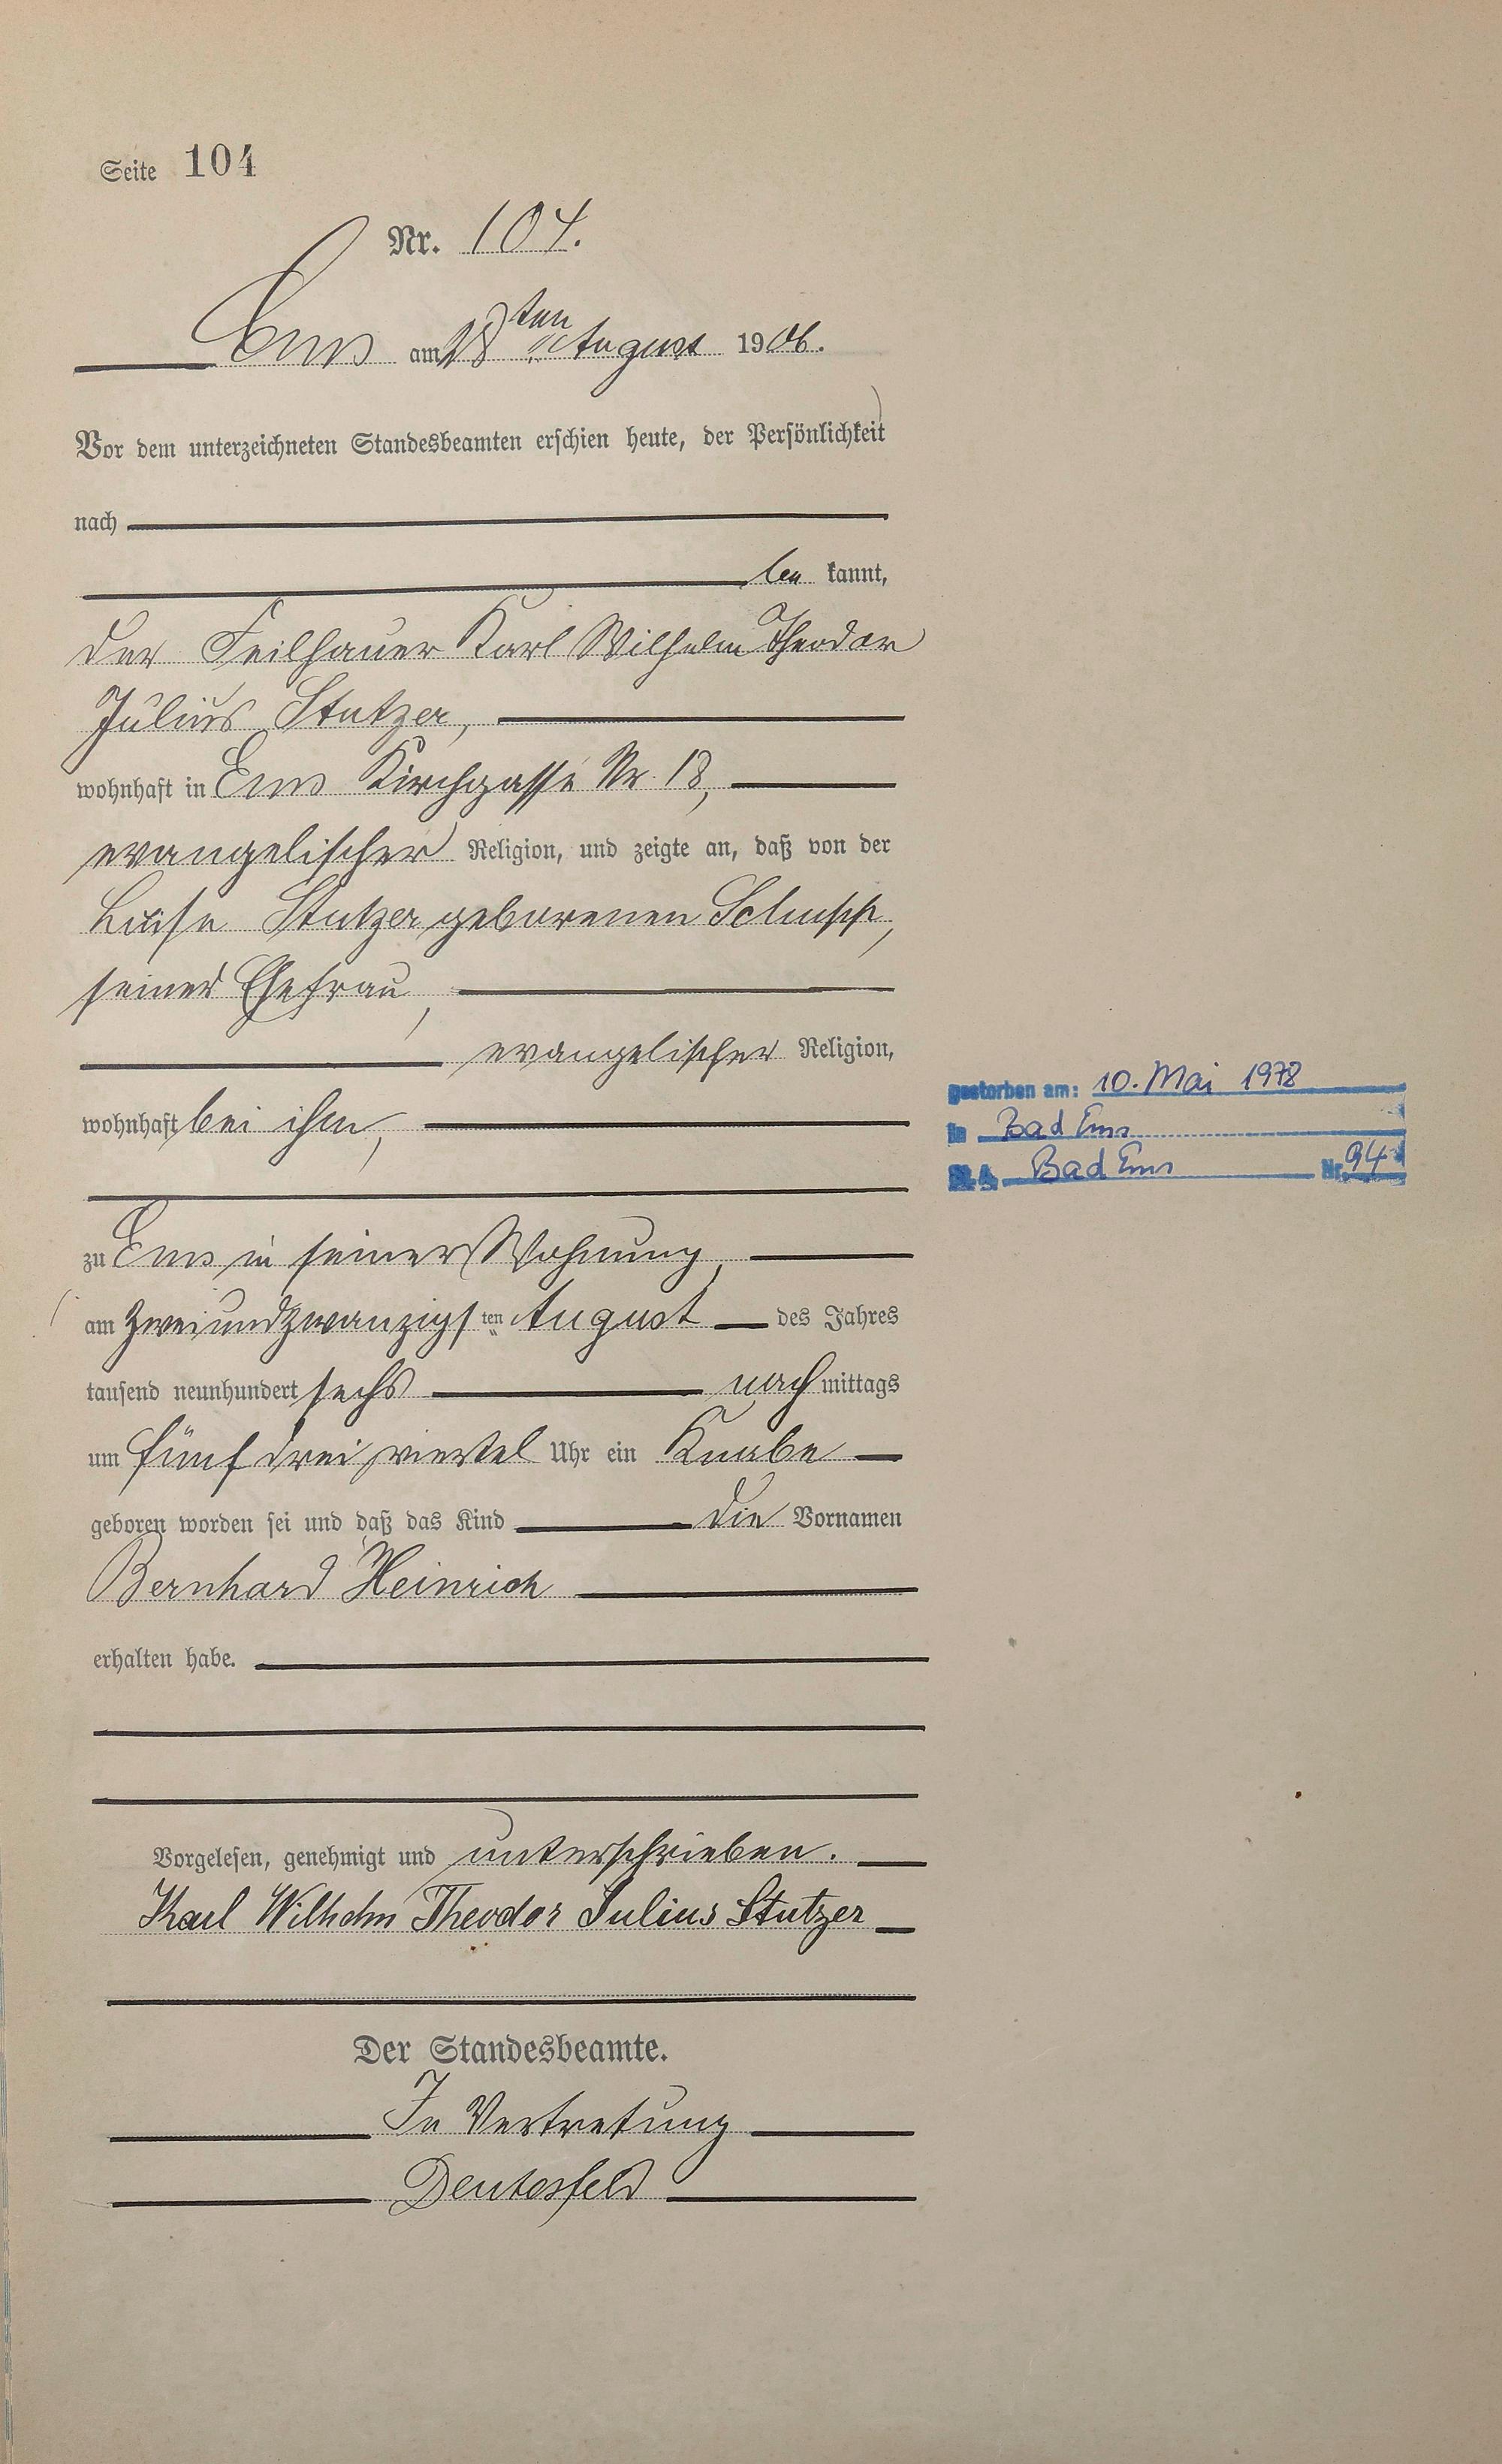 Seite 104
Nr. 104.
Ems am 28ten August 1906.
Vor dem unterzeichneten Standesbeamten erschien heute, der Persönlichkeit
nach
be kannt,
der Feilhauer Karl Wilhelm Theodor
Julius Stutzer,
wohnhaft in Ems Kirchgasse Nr. 18,
evangelischer Religion, und zeigte an, daß von der
Luise Stutzer geborenen Schupp,
seiner Ehefrau,
evangelischer Religion,
wohnhaft bei ihm,
gestorben am: 10. Mai 1978
in Bad Ems
St. A. Bad Ems Nr. 94
zu Ems in seiner Wohnung,
am zweiundzwanzigsten August des Jahres
tausend neunhundert sechs nachmittags
um fünf dreiviertel Uhr ein Knabe
geboren worden sei und daß das Kind die Vornamen
Bernhard Heinrich
erhalten habe.
Vorgelesen, genehmigt und unterschrieben.
Karl Wilhelm Theodor Julius Stutzer
Der Standesbeamte.
In Vertretung